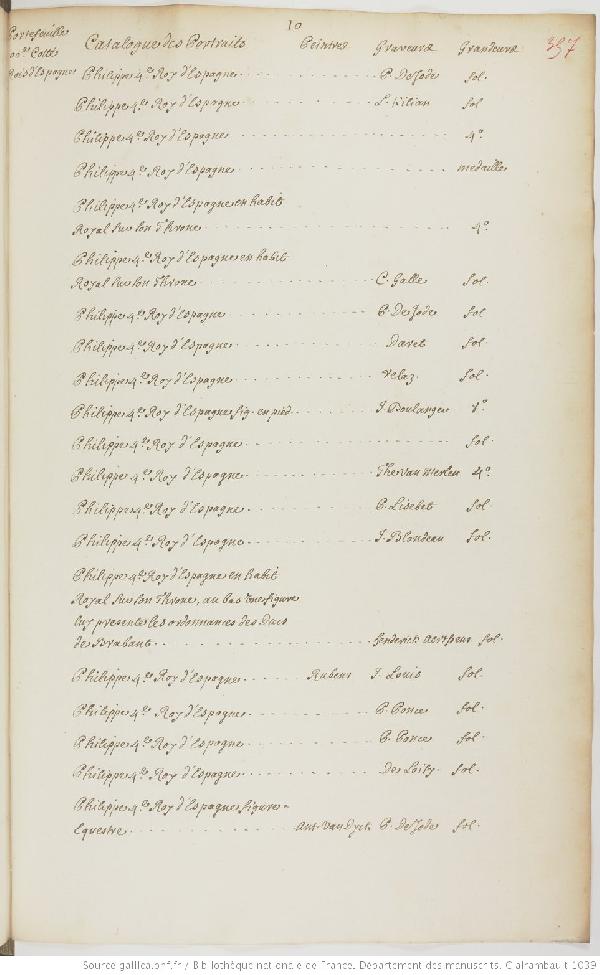 10
Portefeuille
Catalogue des Portraits Peintres Graveurs Grandeurs 357
Rois d'Espagne
Philippe 4.e Roy d'Espagne P. De Jode fol.
Philippe 4.e Roy d'Espagne L. Kilian fol
Philippe 4.e Roy d'Espagne 4.o
Philippe 4.e Roy d'Espagne medaille
Philippe 4.e Roy d'Espagne en habit
Royal sur son Throne 4.o
Philippe 4.e Roy d'Espagne en habit
Royal sur son Throne C. Galle fol.
Philippe 4.e Roy d'Espagne P. De Jode fol
Philippe 4.e Roy d'Espagne Daret fol.
Philippe 4.e Roy d'Espagne Velaz. fol.
Philippe 4.e Roy d'Espagne fig. en pied J. Boulanger
Philippe 4.e Roy d'Espagne fol.
Philippe 4.e Roy d'Espagne The van Merlen 4.o
Philippe 4.e Roy d'Espagne P. Lisebet fol.
Philippe 4.e Roy d'Espagne J. Blondeau fol.
Philippe 4.e Roy d'Espagne en habit
Royal sur son Throne, au bas une figure
luy presente les ordonnances des Ducs
de Brabant fol.
Philippe 4.e Roy d'Espagne Rubens J. Louis fol.
Philippe 4.e Roy d'Espagne P. Ponce fol.
Philippe 4.e Roy d'Espagne P. Ponce fol.
Philippe 4.e Roy d'Espagne fol.
Philippe 4.e Roy d'Espagne figure
Equestre Ant. Van Dyck P. De Jode fol.
Source gallica.bnf.fr / Bibliothèque nationale de France. Département des manuscrits. Clairambault 1039